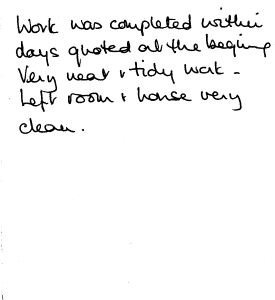 Work was completed within
days quoted at the begining
Very neat & tidy work -
Left room & house very
clean.